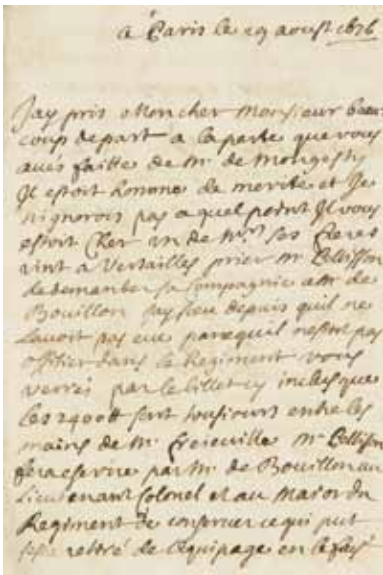 a Paris le 29 aoust 1676
Jay pris Mon cher Monsieur beau
coup de part a la perte que vous
avés faitte de Mr de Mongesty
Il estoit homme de merite et Je
n'ignorois pas a quel point Il vous
estoit Cher un de Mrs ses freres
vint a Versailles prier Mr Pellisson
de demander sa Compagnie a Mr de
Bouillon Jay sceu depuis quil ne
lavoit pas eue parcequil nestoit pas
offitier dans le Regiment vous
verrés par le billet cy inclus que
les 2400 sont tousjours entre les
mains de Mr Mr Pellisson
fera escrire par Mr de Bouillon au
Lieutenant Colonel et au Major du
Regiment de conserver ce qui peut
estre resté de l'equipage en le fais